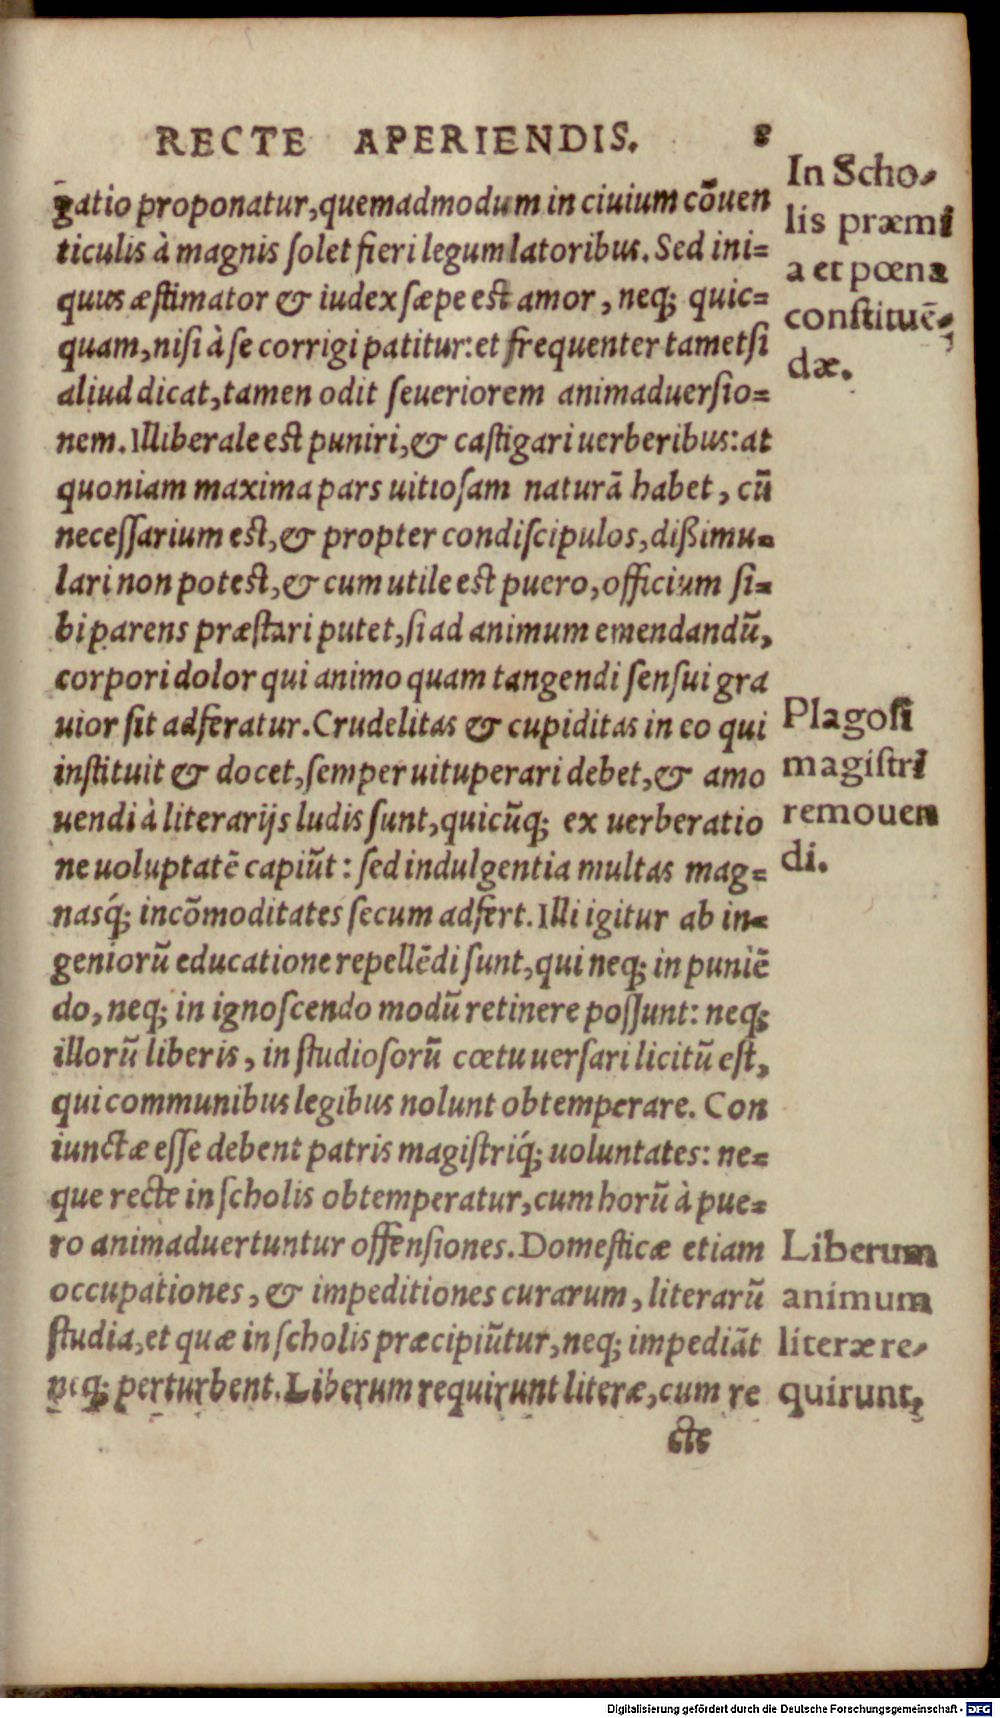 RECTE APERIENDIS. 8
gatio proponatur, quemadmodum in ciuium cōuen
ticulis à magnis solet fieri legum latoribus. Sed ini=
quus æstimator & iudex sæpe est amor, neq; quic=
quam, nisi à se corrigi patitur: et frequenter tametsi
aliud dicat, tamen odit seueriorem animaduersio=
nem. Illiberale est puniri, & castigari uerberibus: at
quoniam maxima pars uitiosam naturā habet, cū
necessarium est, & propter condiscipulos, dißimu=
lari non potest, & cum utile est puero, officium si=
bi parens præstari putet, si ad animum emendandū,
corpori dolor qui animo quam tangendi sensui gra
uior sit adferatur. Crudelitas & cupiditas in eo qui
instituit & docet, semper uituperari debet, & amo
uendi à literarijs ludis sunt, quicūq; ex uerberatio
ne uoluptatē capiūt: sed indulgentia multas mag=
nasq́; incōmoditates secum adfert. Illi igitur ab in=
geniorū educatione repellēdi sunt, qui neq; in puniē
do, neq; in ignoscendo modū retinere possunt: neq;
illorū liberis, in studiosorū cœtu uersari licitū est,
qui communibus legibus nolunt obtemperare. Con
iunctæ esse debent patris magistriq́; uoluntates: ne=
que recte in scholis obtemperatur, cum horū à pue=
ro animaduertuntur offensiones. Domesticæ etiam
occupationes, & impeditiones curarum, literarū
studia, et quæ in scholis præcipiūtur, neq; impediāt
neq; perturbent. Liberum requirunt literæ, cum re
cte
In Scho-
lis præmi
a et pœnæ
constituē-
dæ.
Plagosi
magistri
remouen
di.
Liberum
animum
literæ re-
quirunt,
Digitalisierung gefördert durch die Deutsche Forschungsgemeinschaft - DFG